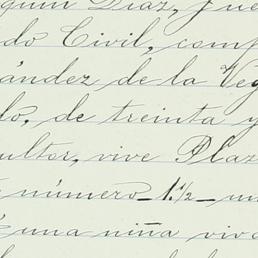 quin Díaz, Jue
do Civil, comp
ández de la Veg
do, de treinta y
ultor, vive Plaz
número 1½
é una niña viva